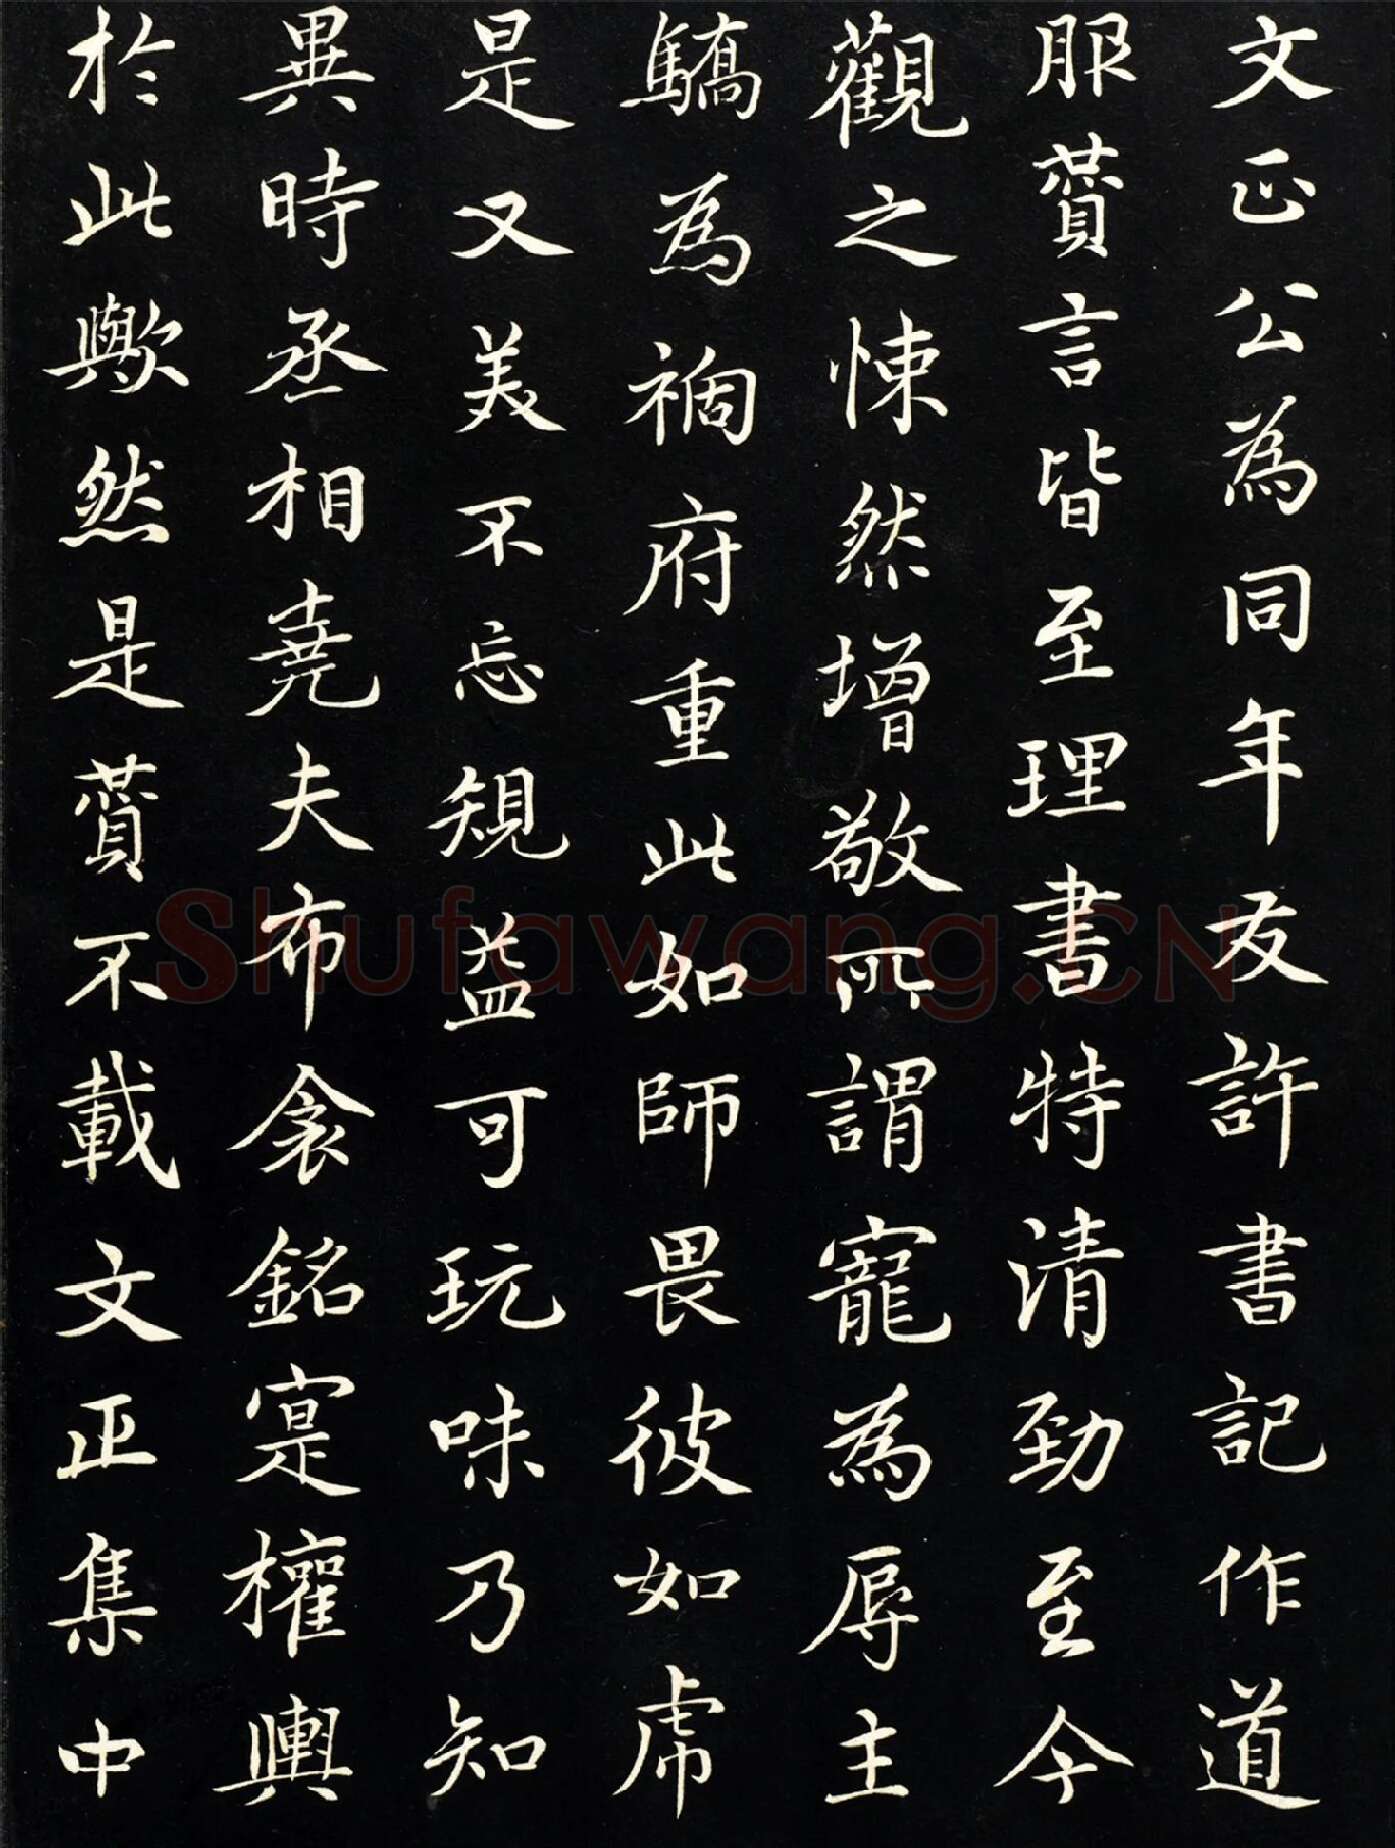 文正公為同年友許書記作道
服賛言皆至理書特清勁至今
觀之悚然增敬所謂寵為辱主
驕為禍府重此如師畏彼如虎
是又美不忘規益可玩味乃知
異時丞相堯夫布衾銘寔權輿
於此歟然是賛不載文正集中
Shufawang.CN